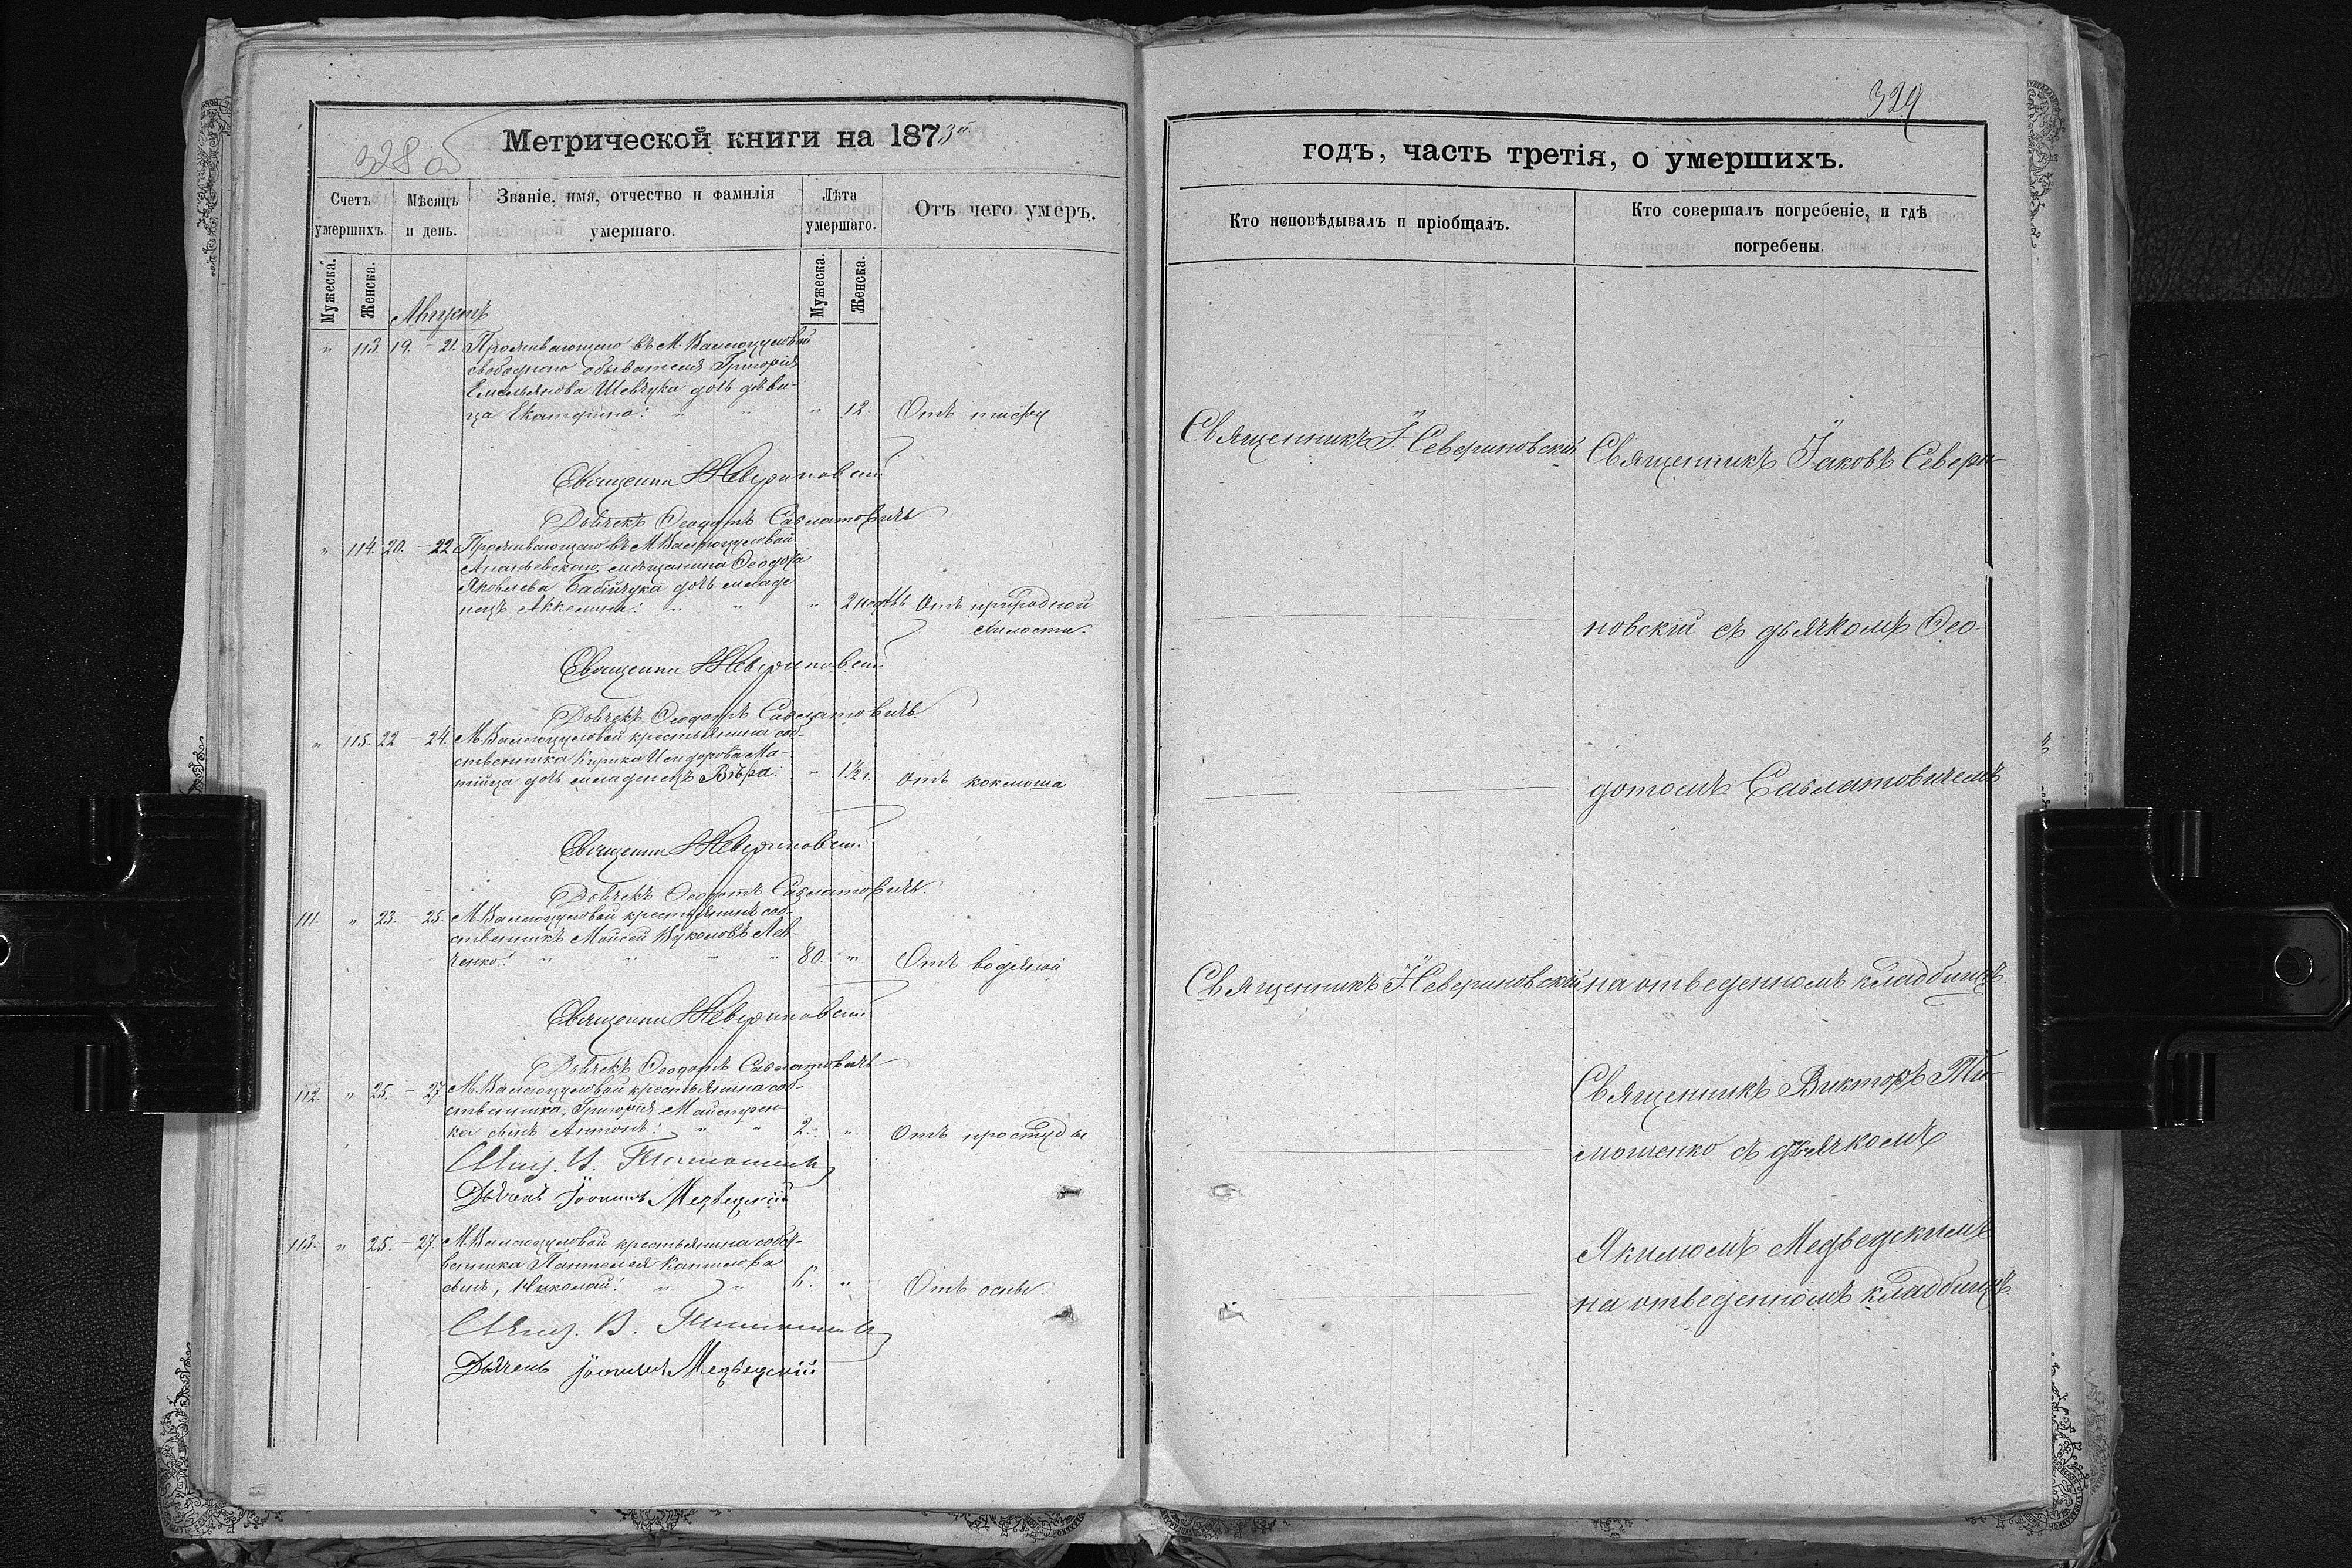 328 об
Метрической книги на 1873й
Счетъ умершихъ.
Мѣсяцъ и день.
Званіе, имя, отчество и фамилія умершаго.
Лѣта умершаго.
Отъ чего умеръ.
Мужеска.
Женска.
Мужеска.
Женска.
Августъ
" 113. 19. - 21. Проживающаго въ М. Валегоцуловой
свободнаго обывателя Григорія
Емельянова Шевчука дочь дѣви-
ца Екатерина: " " " 12. Отъ тифу
Священни Севериновскій
Дьячекъ Ѳеодотъ Савлатовичъ
" 114. 20. - 22 Проживающаго въ М. Валегоцуловой
Ананьевскаго мѣщанина Ѳеодора
Яковлева Бабійчука дочь младе
нецъ Аккелина: " " " 2 недѣль Отъ природной
хилости.
Священни Севериновскій
Дьячекъ Ѳеодотъ Савлатовичъ
" 115. 22 - 24. М. Валегоцуловой крестьянина соб-
ственника Кирика Исидорова Ма-
тійца дочь младенецъ Вѣра. " 1½ г. отъ коклюша
Священни Севериновскій
Дьячекъ Ѳеодотъ Савлатовичъ.
111. " 23. - 25. М. Валегоцуловой крестьянинъ соб-
ственникъ Мойсей Вуколовъ Лев-
ченко: " " " " 80. " Отъ водяной
Священни Севериновскій
Дьячекъ Ѳеодотъ Савлатовичъ
112. " 25. - 27. М. Валегоцуловой крестьянина соб-
ственника, Григорія Майстрен-
ка сынъ Антонъ: " " 2. " Отъ простуды
Свящ. В. Тимошенко
Дьячекъ Іоакимъ Медведскій
113. " 25. - 27. М. Валегоцуловой крестьянина собст-
венника Пантелея
сынъ, Николай: " " 6. " Отъ оспы.
Свящ. В. Тимошенко
Дьячекъ Іоакимъ Медведскій
329
годъ, часть третія, о умершихъ.
Кто исповѣдывалъ и пріобщалъ.
Кто совершалъ погребеніе, и гдѣ погребены.
Священникъ І. Севериновскій Священникъ Іаковъ Севери-
новскій съ дьячкомъ Ѳео-
дотомъ Савлатовичемъ
Священникъ І. Севериновскій на отведенномъ кладбищѣ.
Священникъ Викторъ Ти-
мошенко съ дьячкомъ
Якимомъ Медведскимъ
на отведенномъ кладбищѣ